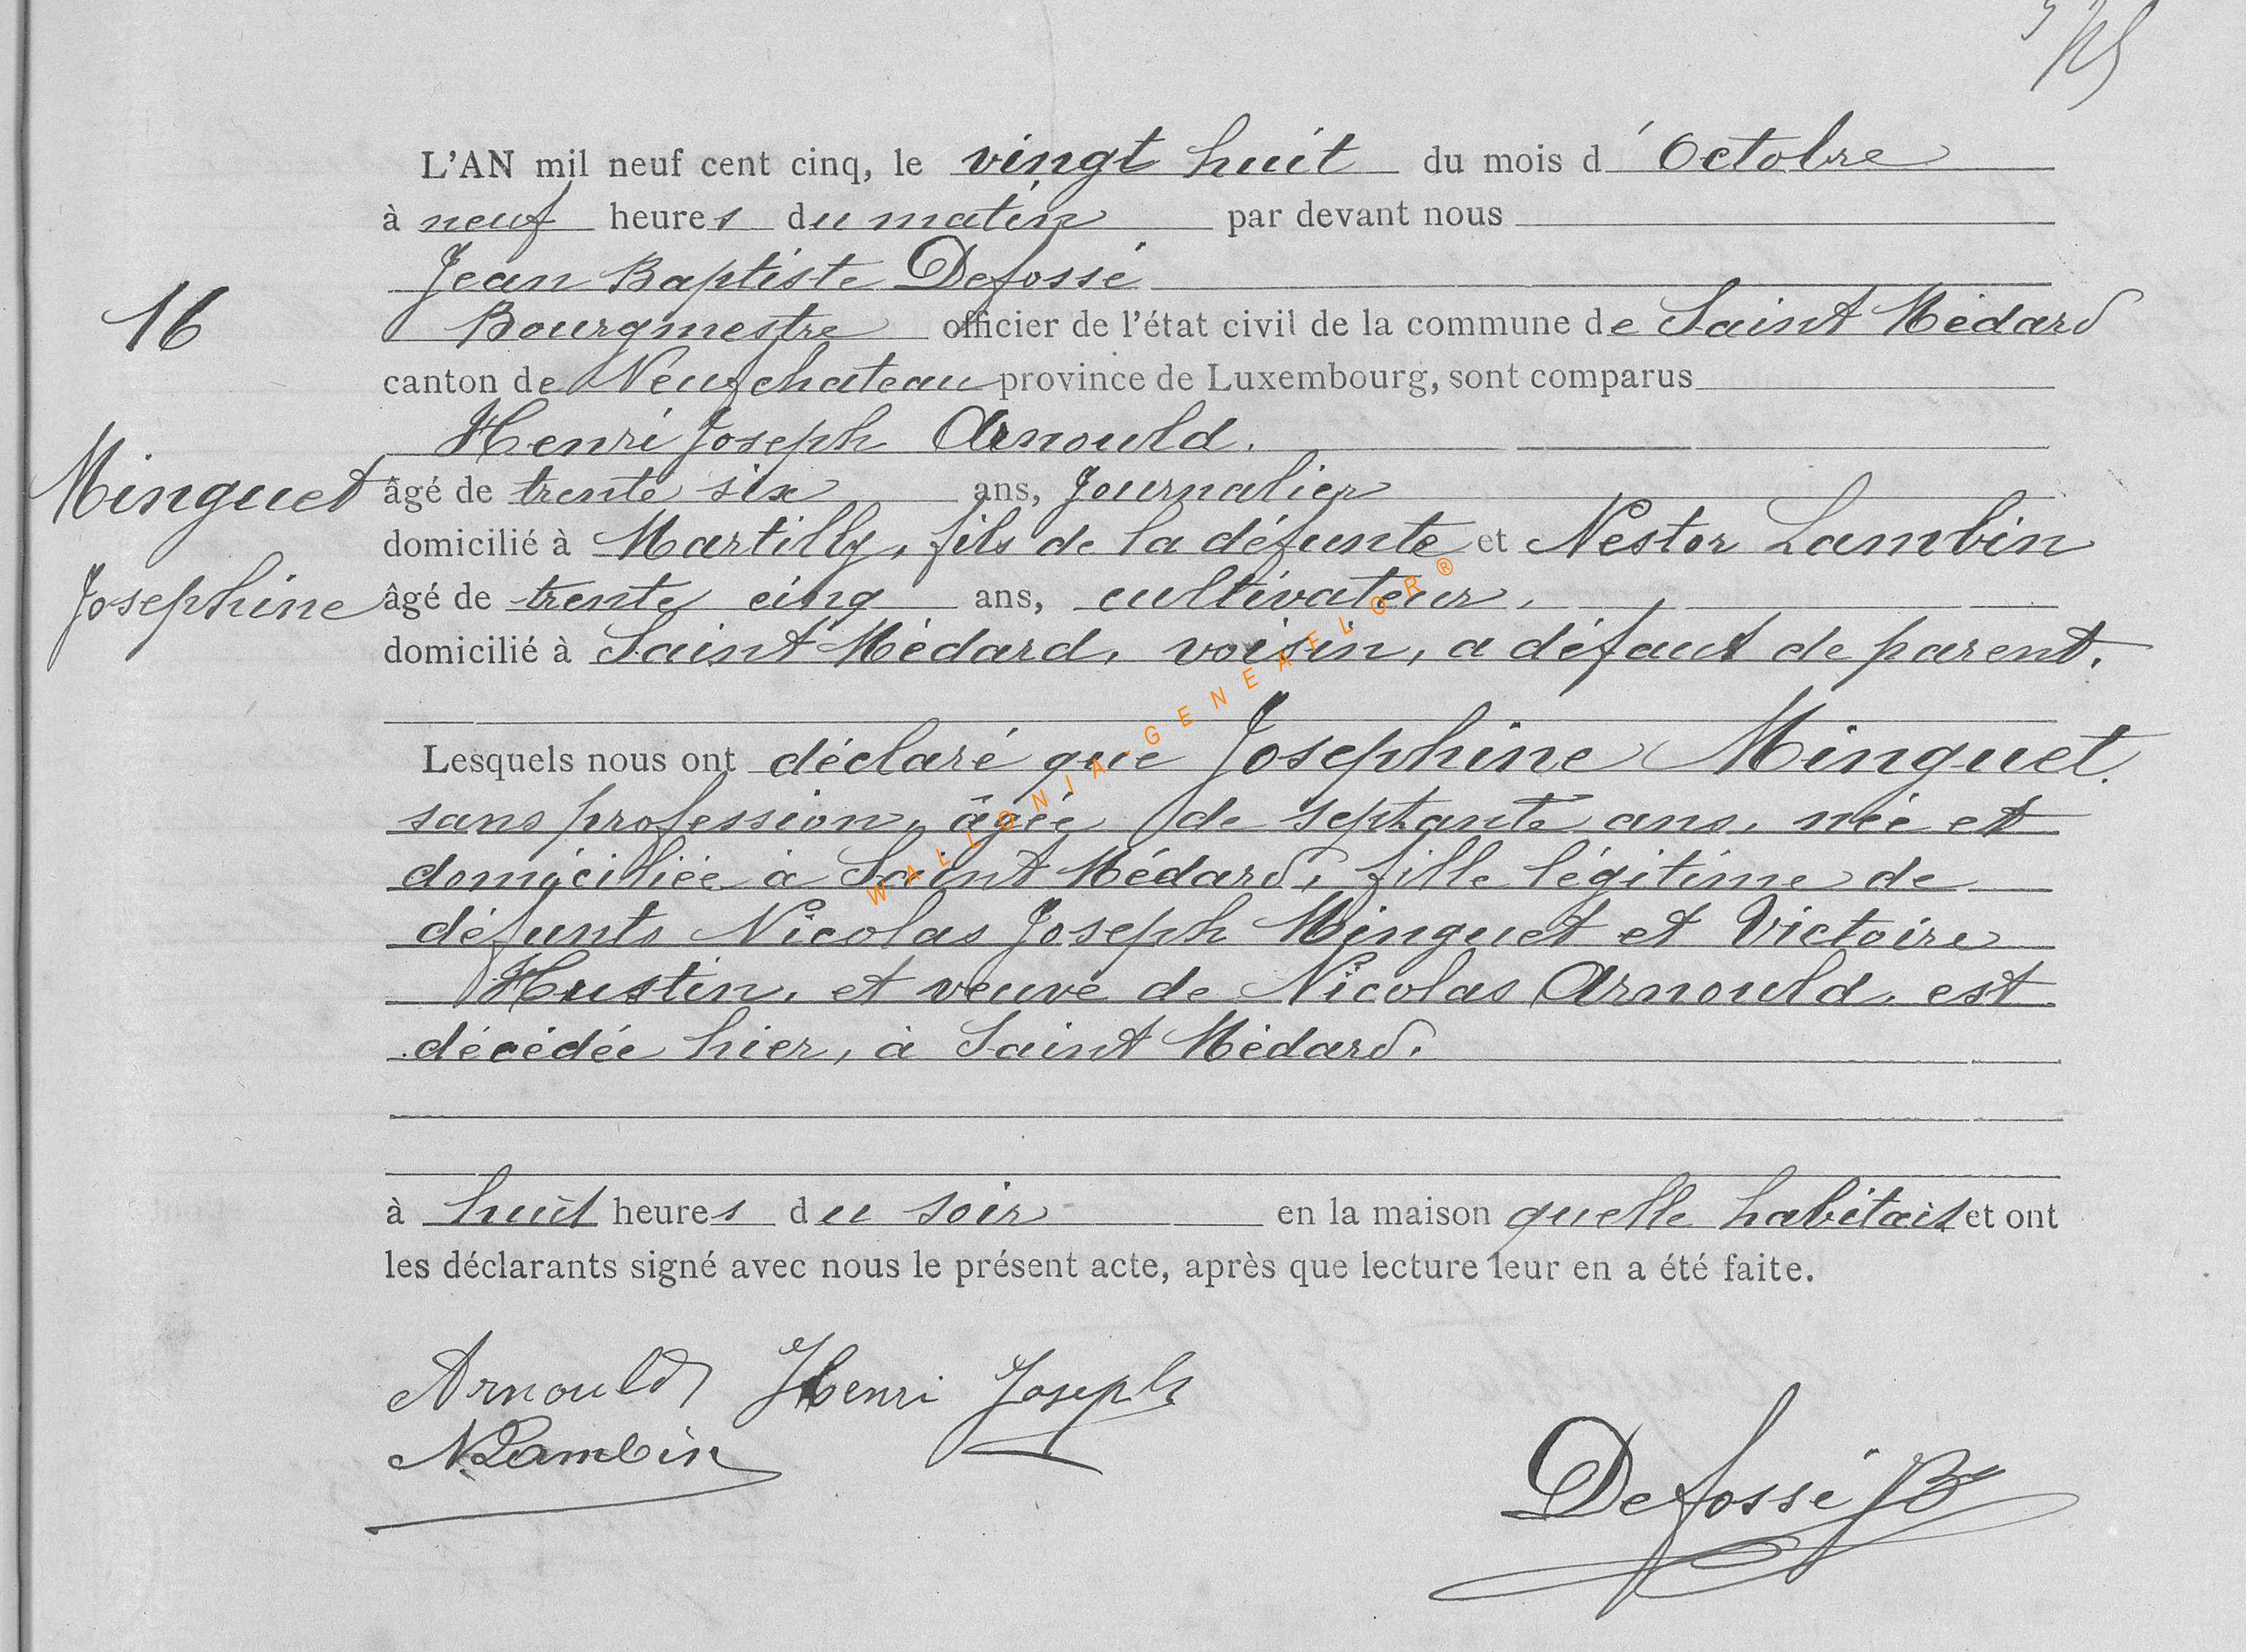 16
Minguet
Josephine
L'AN mil neuf cent cinq, le vingt huit du mois d'Octobre
à neuf heures du matin par devant nous
Jean Baptiste Defossé
Bourgmestre officier de l'état civil de la commune de Saint Médard
canton de Neufchateau province de Luxembourg, sont comparus
Henri Joseph Arnould.
âgé de trente six ans, Journalier
domicilié à Martilly, fils de la défunte et Nestor Lambin
âgé de trente cinq ans, cultivateur,
domicilié à Saint Médard, voisin, a défaut de parent.
Lesquels nous ont déclaré que Josephine Minguet.
sans profession, âgée de septante ans, née et
domiciliée à Saint Médard, fille légitime de
défunts Nicolas Joseph Minguet et Victoire
Hustin, et veuve de Nicolas Arnould, est
décédée hier, à Saint Médard.
à huit heures du soir en la maison quelle habitait et ont
les déclarants signé avec nous le présent acte, après que lecture leur en a été faite.
Arnould Henri Joseph
N. Lambin
Defossé JB
WALLONIA-GENEAFLOR®